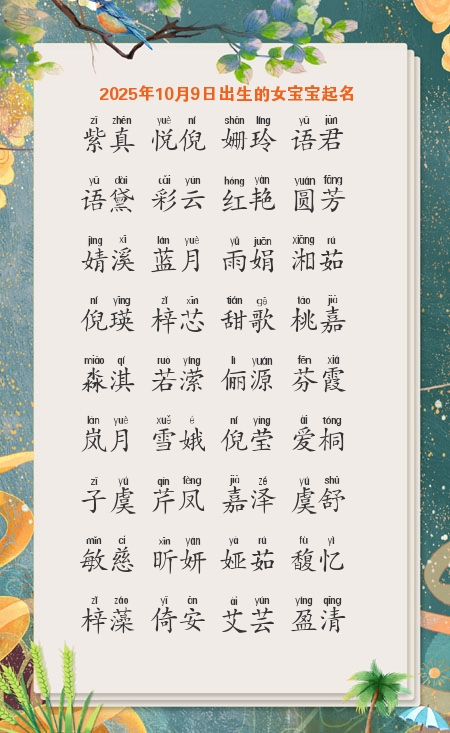 2025年10月9日出生的女宝宝起名
zǐ zhēn yuè ní shān líng yǔ jūn
紫真 悦倪 姗玲 语君
yǔ dài cǎi yún hóng yàn yuán fāng
语黛 彩云 红艳 圆芳
jìng xī lán yuè yǔ juān xiāng rú
婧溪 蓝月 雨娟 湘茹
ní yīng zǐ xīn tián gē táo jiā
倪瑛 梓芯 甜歌 桃嘉
miǎo qí ruò yíng lì yuán fēn xiá
淼淇 若潆 俪源 芬霞
lán yuè xuě é ní yíng ài tóng
岚月 雪娥 倪莹 爱桐
zǐ yú qín fèng jiā zé yú shū
子虞 芹凤 嘉泽 虞舒
mǐn cí xīn yán yà rú fù yì
敏慈 昕妍 娅茹 馥忆
zǐ zǎo yǐ ān ài yún yíng qīng
梓藻 倚安 艾芸 盈清